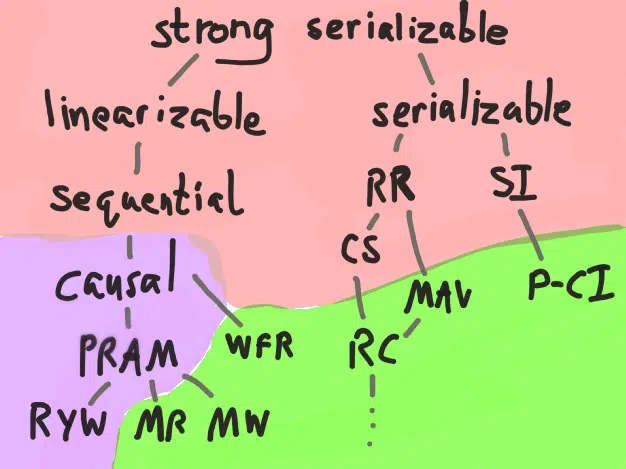 strong serializable
linearizable serializable
sequential RR SI
CS
causal MAV P-CI
PRAM WFR RC
RYW MR MW